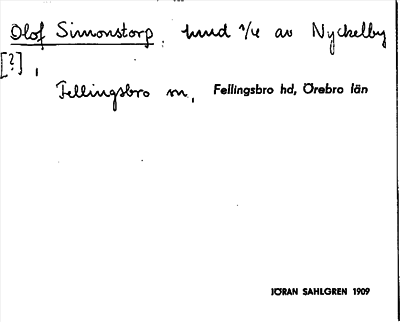 Olof Simonstorp, hmd 1/4 av Nyckelby
[?],
Fellingsbro sn, Fellingsbro hd, Örebro län
JÖRAN SAHLGREN 1909